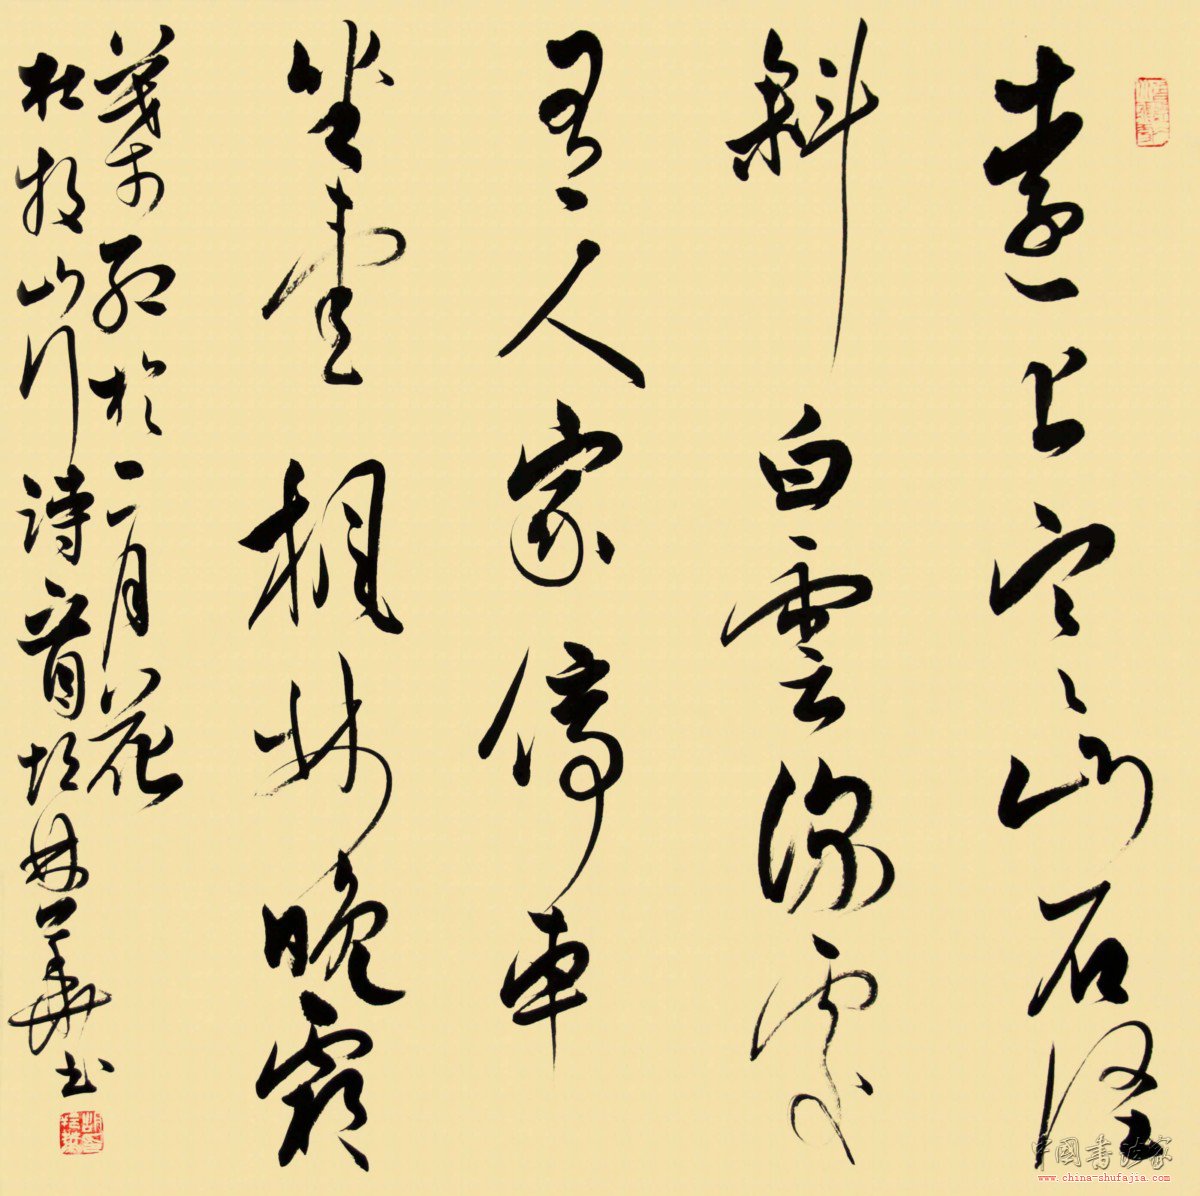 遠上寒山石徑
斜白雲深處
有人家停車
坐愛楓林晚霜
葉紅於二月花
杜牧山行詩一首 林華書
中國書法家
www.china-shufajia.com